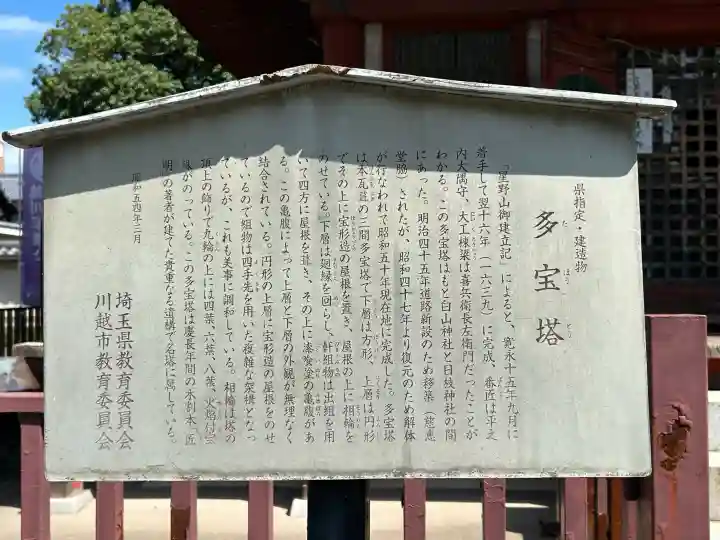 県指定・建造物
多宝塔
たほうとう
「星野山御建立記」によると、寛永十五年九月に
着手して翌十六年（一六三九）に完成、番匠は平之
内大隅守、大工棟梁は喜兵衛長左衛門だったことが
わかる。この多宝塔はもと白山神社と日枝神社の間
にあった。明治四十五年道路新設のため移築（慈恵
堂脇）されたが、昭和四十七年より復元のため解体
が行なわれて昭和五十年現在地に完成した。多宝塔
は本瓦葺の三間多宝塔で下層は方形、上層は円形
でその上に宝形造の屋根を置き、屋根の上に相輪を
のせている。下層は廻縁を回らし、軒組物は出組を用
いて四方に屋根を葺き、その上に漆喰塗の亀腹があ
る。この亀腹によって上層と下層の外観が無理なく
結合されている。円形の上層に宝形造の屋根をのせ
ているので組物は四手先を用いた複雑な架構となっ
ているが、これも美事に調和している。相輪は塔の
頂上の飾りで九輪の上には四葉、六葉、八葉、火焔付宝
珠がのっている。この多宝塔は慶長年間の木割本「匠
明」の著者が建てた貴重なる遺構で名塔に属している。
昭和五四年三月
埼玉県教育委員会
川越市教育委員会